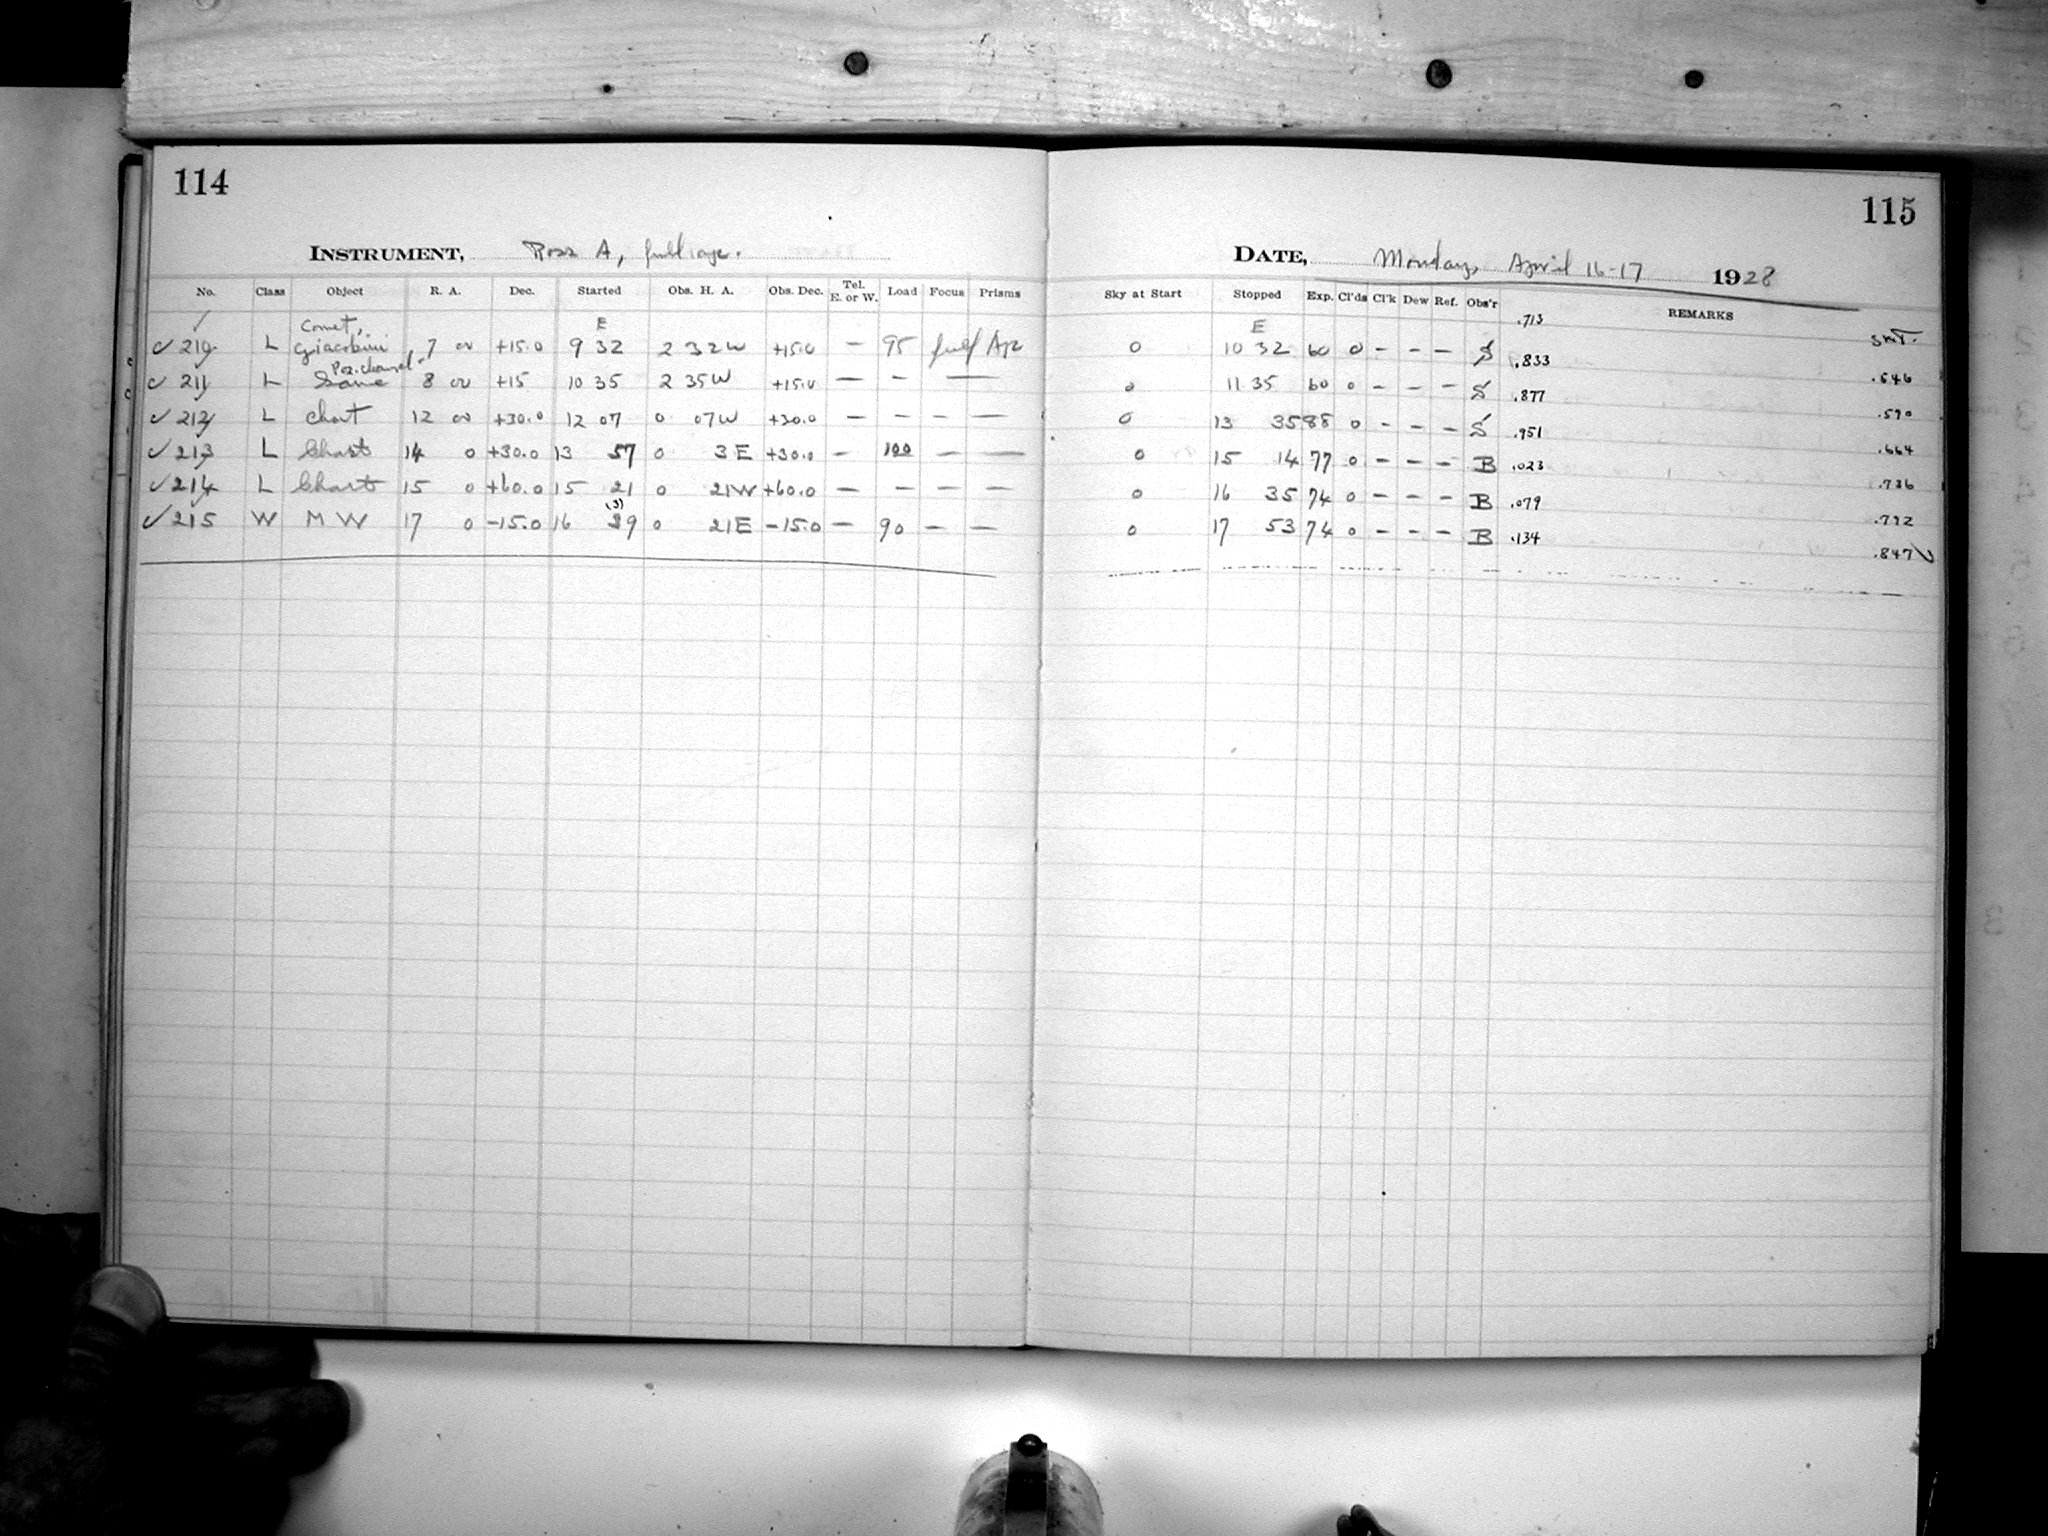 114
INSTRUMENT, Ross A, full ap.
No. Class Object R. A. Dec. Started Obs. H. A. Obs. Dec. Tel. E. or W. Load Focus Prisms
Comet, E
✓ 210 L Giacobini 7 00 +15.0 9 32 2 32 W +15.0 — 95 full Ap
Pos. changed.
✓ 211 L Same 8 00 +15 10 35 2 35 W +15.0 — - —
✓ 212 L Chart 12 00 +30.0 12 07 0 07 W +30.0 — - - —
✓ 213 L Chart 14 0 +30.0 13 57 0 3 E +30.0 - 100 - —
✓ 214 L Chart 15 0 +60.0 15 21 0 21 W +60.0 — - - —
✓ 215 W M W 17 0 -15.0 16 39 0 21 E -15.0 — 90 - —
115
DATE, Monday, April 16-17 1928
Sky at Start Stopped Exp. Cl'ds Cl'k Dew Ref. Obs'r REMARKS
E .713
0 10 32 60 0 - - - S .833
0 11 35 60 0 - - - S .877 .546
0 13 35 88 0 - - - S .951 .590
0 15 14 77 0 - - - B .023 .664
0 16 35 74 0 - - - B .079 .736
0 17 53 74 0 - - - B .134 .792
.847 ✓